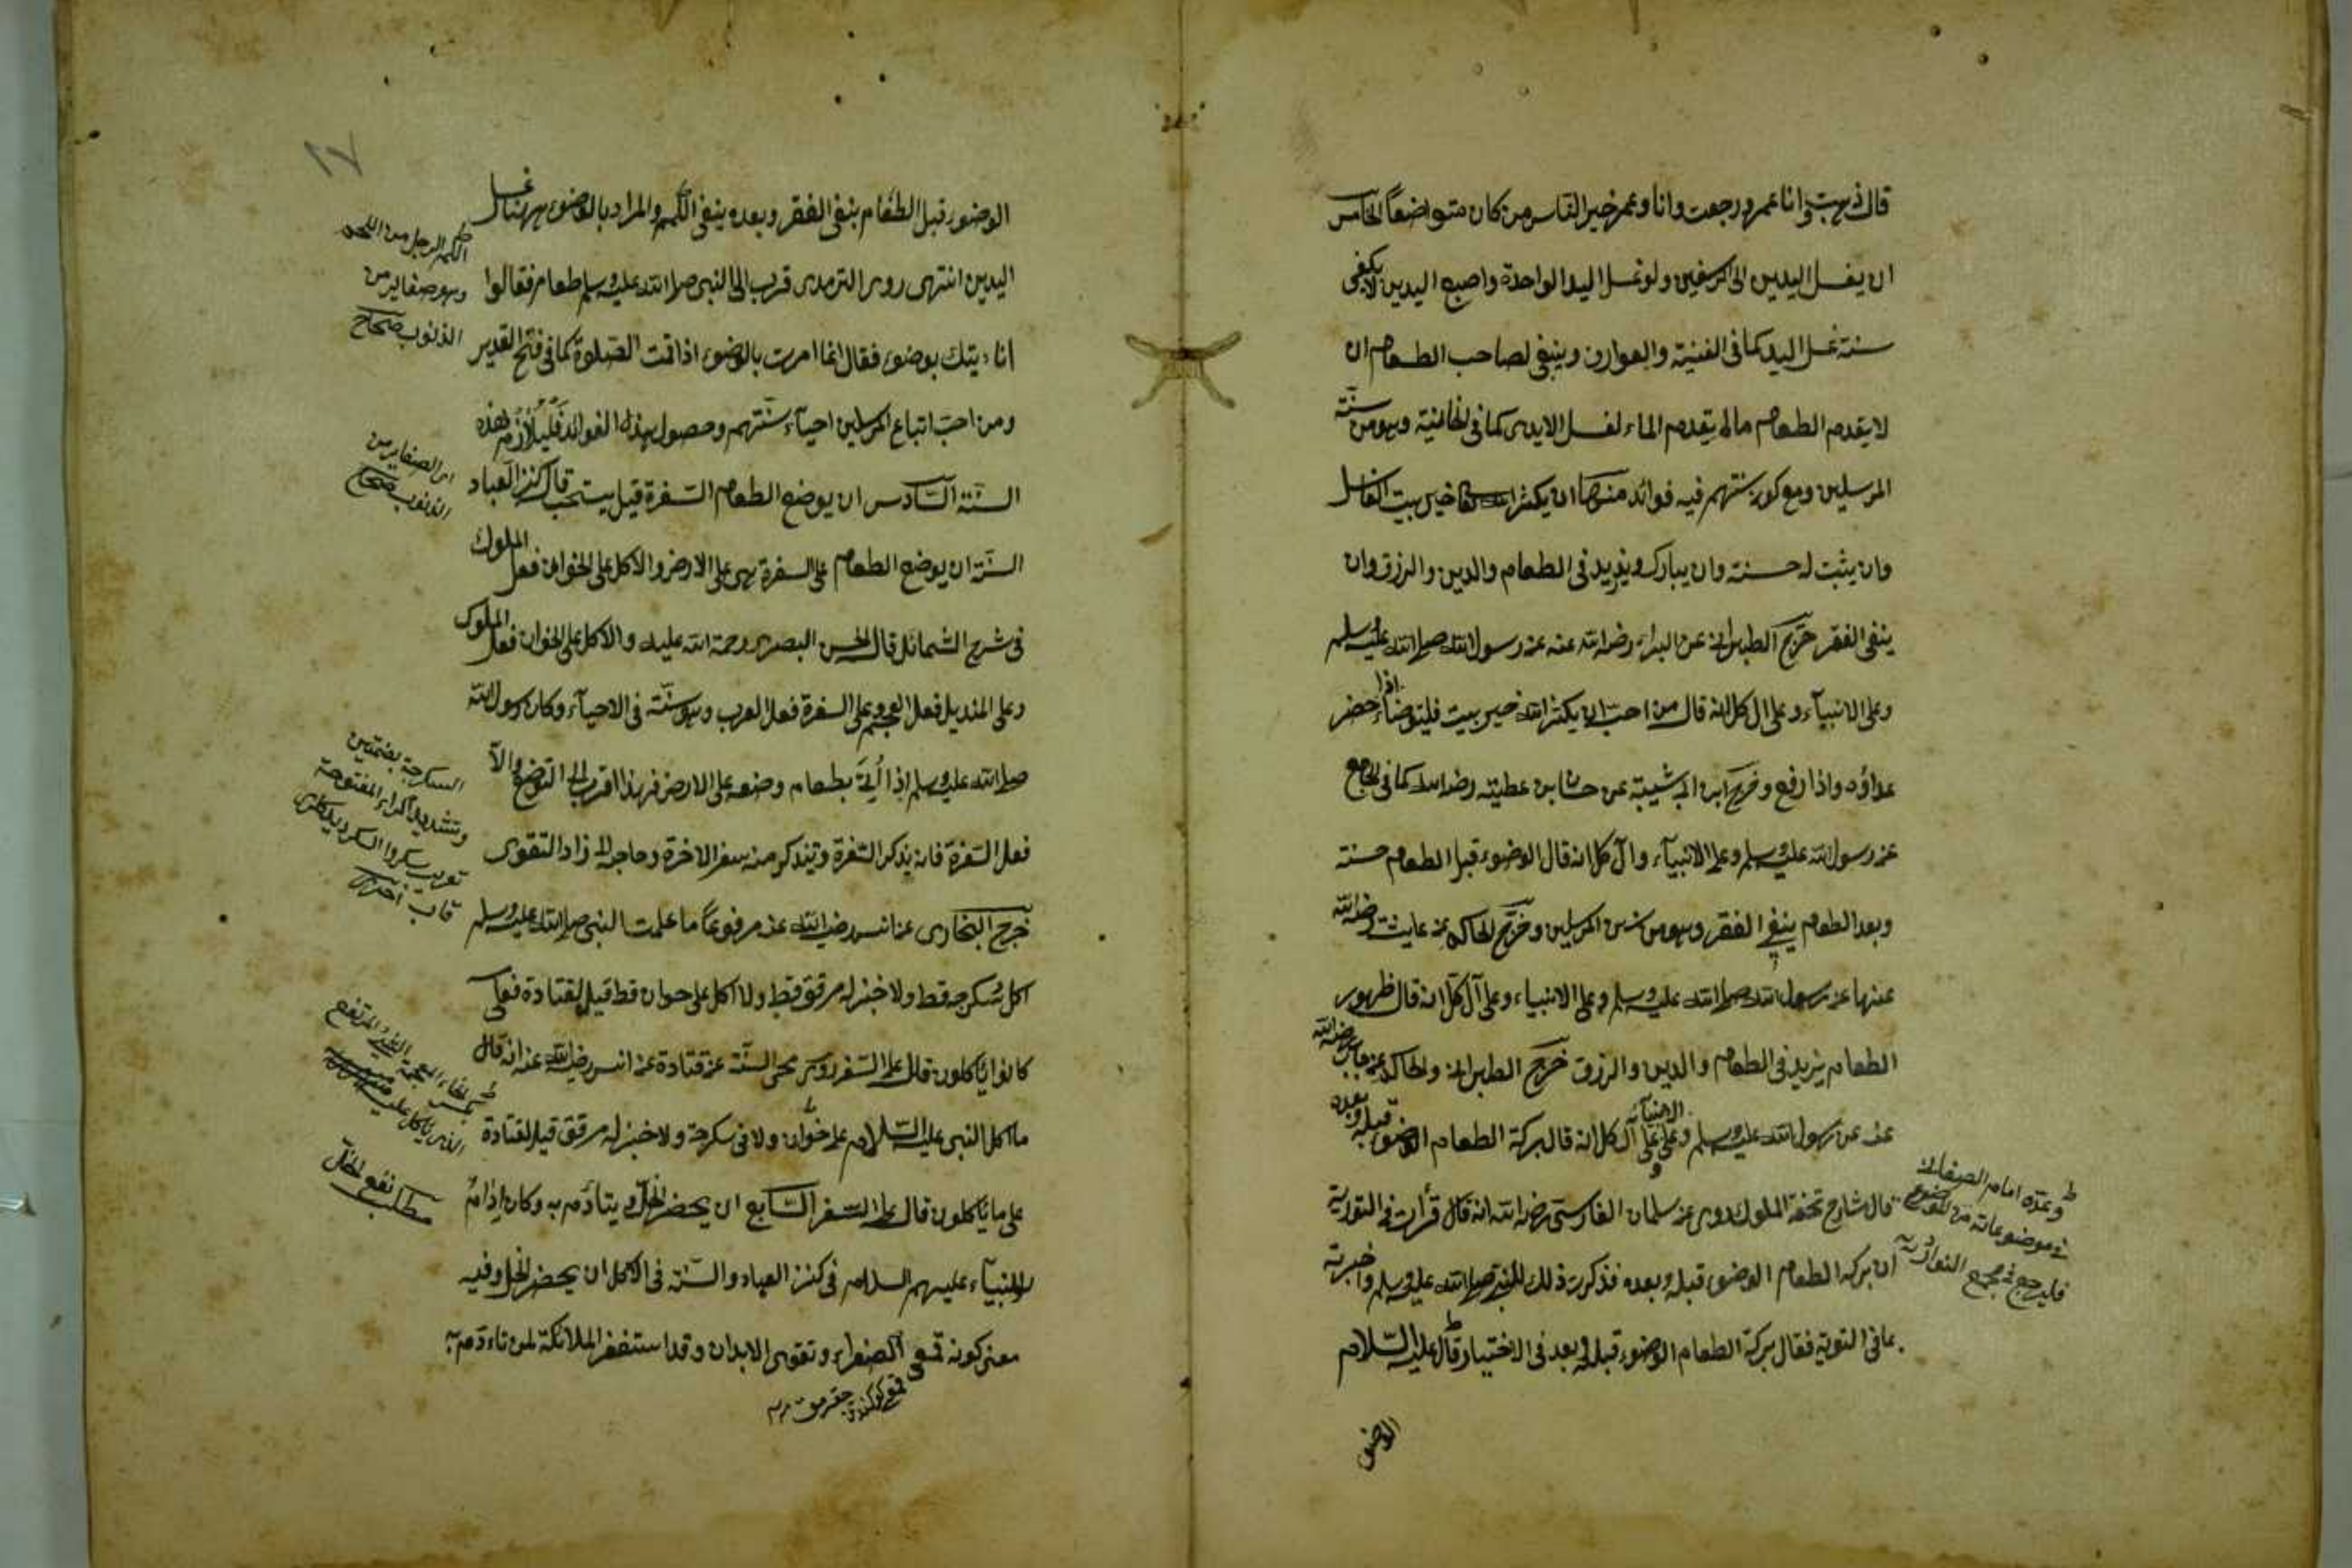 قال ذهبت وانا عمر ورجعت وانا وعمر خير الناس من كان متواضعاً الخامس
ان يغسل اليدين الى الرسغين ولو غسل اليد الواحدة واصبع اليدين لا يكفى
سنة غسل اليد كما فى القنية والعوارف وينبغى لصاحب الطعام ان
لا يقدم الطعام ما لم يقدم الماء لغسل الايدى كما فى الخانية وهو من سنة
المرسلين ومع كون سنتهم فيه فوائد منها ان يكثر خير بيت الغاسل
وان يثبت له حسنة وان يبارك ويزيد فى الطعام والدين والرزق وان
ينفى الفقر خرّج الطبرانى عن البراء رضى الله عنه عن رسول الله صلى الله عليه وسلم
وعلى الانبياء وعلى ال كل انه قال من احب ان يكثر الله خير بيته فليتوضاء اذا حضر
غداؤه واذا رفع وخرّج ابن ابى شيبة عن حسان ابن عطية رضى الله كما فى الجامع
عن رسول الله عليه وسلم وعلى الانبياء وال كل انه قال الوضوء قبل الطعام حسنة
وبعد الطعام ينفى الفقر وهو من سنن المرسلين وخرّج الحاكم عن عايشة رضى الله
عنها عن رسول الله صلى الله عليه وسلم وعلى الانبياء وعلى آل كل انه قال طهور
الطعام يزيد فى الطعام والدين والرزق خرّج الطبرانى والحاكم عن رضى الله
عنه عن رسول الله عليه وسلم وعلى الانبياء وعلى آل كل انه قال بركة الطعام الوضوء قبله وبعده
قال شارح تحفة الملوك روى عن سلمان الفارسى رضى الله انه قال قرأت فى التورية
ان بركة الطعام الوضوء قبله وبعده فذكرت ذلك للنبى صلى الله عليه وسلم واخبرته
بما فى التورية فقال بركة الطعام الوضوء قبله وبعد فى الاختيار قال عليه السلام
وعدّه امام الصغانى
فى موضوعاته من الموضوع
فليرجع فى مجمع النوازل
الوضوء
١٧
الوضوء قبل الطعام ينفى الفقر وبعده ينفى اللمم والمراد بالوضوء ههنا غسل
اليدين انتهى روى الترمذى قرب الى النبى صلى الله عليه وسلم طعام فقالوا
انا ءيتك بوضوء فقال انما امرت بالوضوء اذا قمت الصلوة كما فى فتح القدير
ومن احبّ اتباع المرسلين احياء سنّتهم وحصول بهذه الفوائد فليلازم هذه
السنّة السّادس ان يوضع الطعام السّفرة قيل يستحب قال كنز العباد
السنّة ان يوضع الطعام على السفرة هى على الارض والاكل على الخوان فعل الملوك
فى شرح الشمائل قال الحسن البصرى رحمة الله عليه والاكل على الخوان فعل الملوك
وعلى المنديل فعل العجم وعلى السفرة فعل العرب وهو سنّة فى الاحياء وكان رسول الله
صلى الله عليه وسلم اذا اُتِىَ بطعام وضعه على الارض فهذا اقرب الى التواضع والّا
فعل السّفرة فانه يذكر السّفرة ويتذكر منه سفر الاخرة وحاجه الى زاد التقوى
خرج البخارى عن انس رضى الله عنه مرفوعاً ما علمت النبى صلى الله عليه وسلم
اكل سُكرجه قط ولا خبز له مرقق قط ولا اكل على خوان قط قيل لقتادة فعلى
كانوا يأكلون قال على السّفر روى محى السنّة عن قتادة عن انس رضى الله عنه انه قال
ما اكل النبى عليه السّلام على خوان ولا فى سكرجة ولا خبز له مرقق قيل لقتادة
على ما ياكلون قال على السّفر السّابع ان يحضر الخلّ ويتأدّم به وكان اِدامُ
الانبياء عليهم السلام فى كنز العباد والسنّة فى الاكل ان يحضر الخل وفيه
معنى كونه قمع الصفراء وتقوى الابدان وقد استغفر الملائكة لمن تاءدّم به
اللمم الرجل من اللحم
وهو صغاير من
الذنوب صحاح
اى الصغاير من
الذنوب صحاح
السكرجة بضمتين
وتشديد الراء المفتوحة
مطلب نفع الخلّ